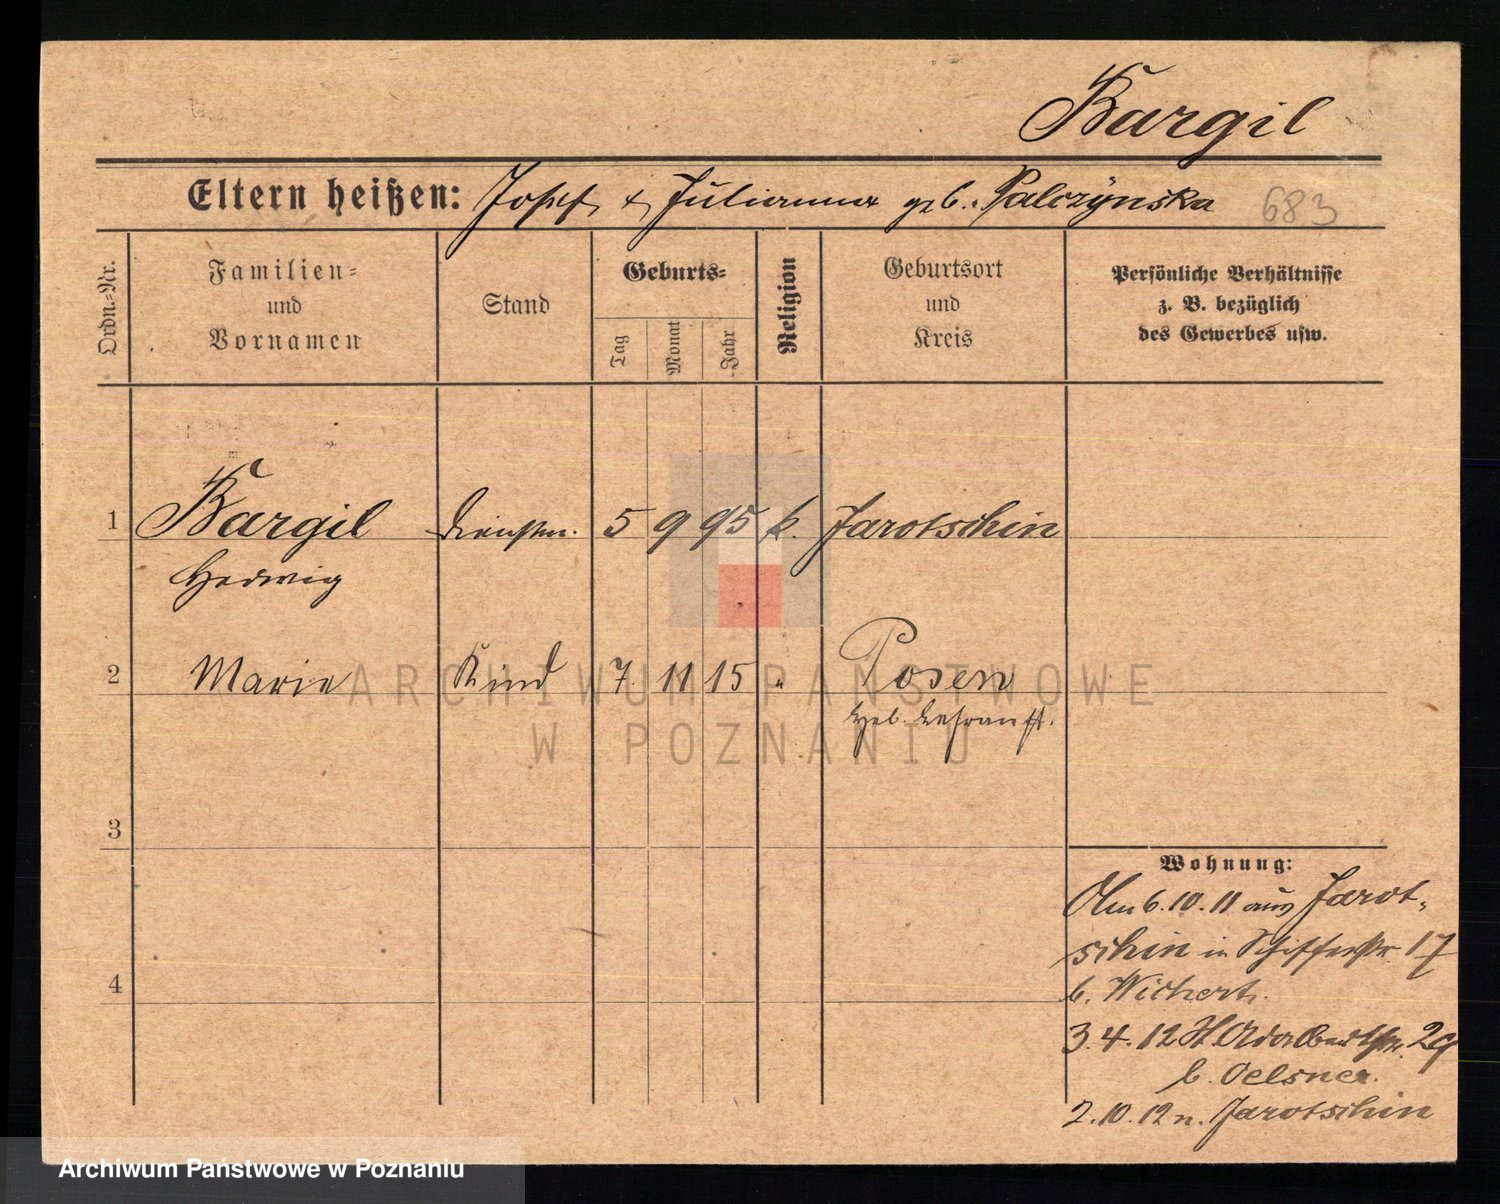 Bargil
Eltern heißen: Josef & Julianna geb. Palczynska 683
Ordn.-Nr.
Familien- und Vornamen
Stand
Geburts-
Tag
Monat
Jahr
Religion
Geburtsort und Kreis
Persönliche Verhältnisse
z. B. bezüglich
des Gewerbes usw.
1 Bargil Dienstm. 5 9 95 k. Jarotschin
Hedwig
2 Marie Kind 7. 11 15 " Posen
Heb.
3
Wohnung:
Am 6.10.11 aus Jarot-
schin in Schifferstr. 17
b. Wichert.
4
3.4.12 St. Adalbertstr. 29
b. Oelsner.
2.10.12 n. Jarotschin
ARCHIWUM PAŃSTWOWE
W POZNANIU
Archiwum Państwowe w Poznaniu